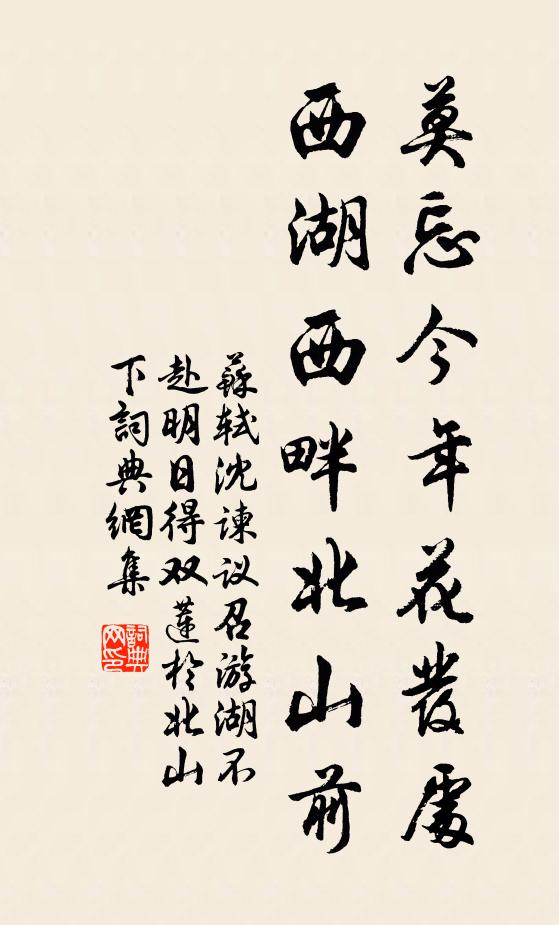 莫忘今年花發處
西湖西畔北山前
蘇軾沈諫议召游湖不
赴明日得双蓮於北山
下詞典網集
詞典
网印